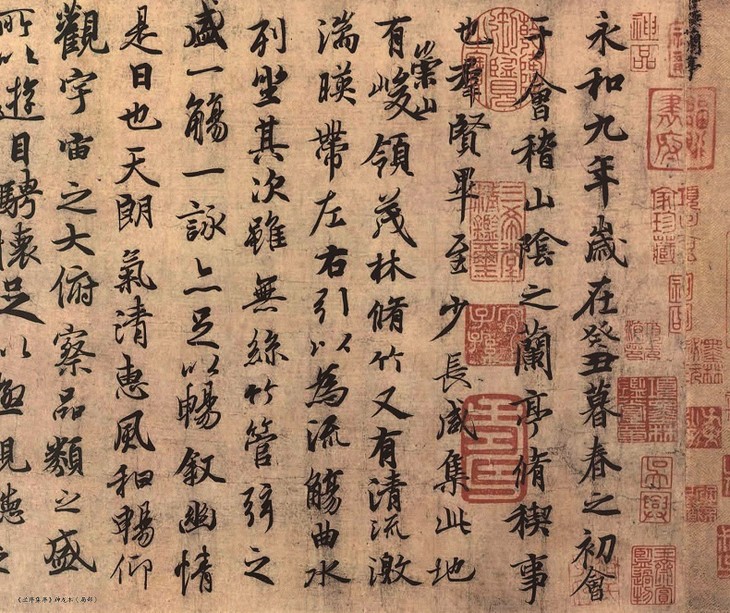 永和九年歲在癸丑暮春之初會
于會稽山陰之蘭亭脩稧事
也羣賢畢至少長咸集此地
有崇山峻領茂林脩竹又有清流激
湍暎帶左右引以為流觴曲水
列坐其次雖無絲竹管弦之
盛一觴一詠亦足以暢叙幽情
是日也天朗氣清惠風和暢仰
觀宇宙之大俯察品類之盛
所以遊目騁懷足以極視聽之
神品
《兰亭集序》神龙本（局部）